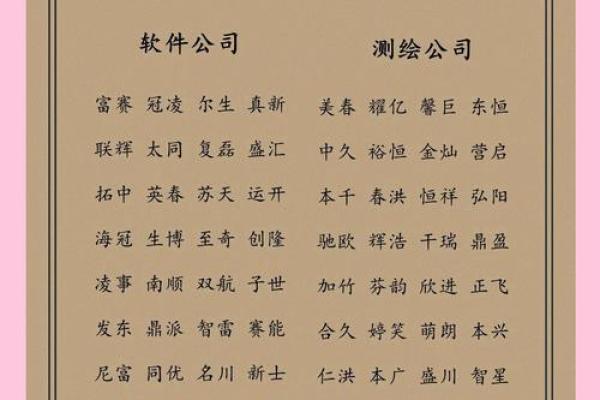 软件公司
富赛 冠凌 尔生 真新
联辉 太同 复磊 盛汇
拓中 英春 苏天 运开
海冠 生博 至奇 创隆
凌事 南顺 双航 子世
发东 鼎派 智雷 赛能
尼富 同优 名川 新士
测绘公司
美春 耀亿 馨巨 东恒
中久 裕恒 金灿 营启
本千 春洪 恒祥 弘阳
驰欧 辉浩 干瑞 鼎盈
加竹 芬韵 欣进 正飞
合久 婷笑 萌朗 本兴
仁洪 本广 盛川 智星